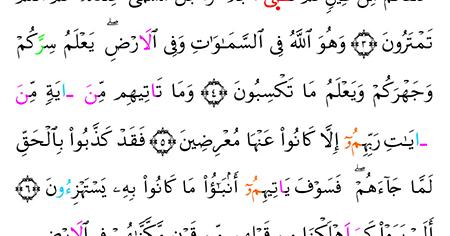 تَمْتَرُونَ ﴿٣﴾ وَهُوَ اَللَّهُ فِى اِلسَّمَٰوَٰتِ وَفِى اِلَارْضِ ۖ يَعْلَمُ سِرَّكُمْ
وَجَهْرَكُمْ وَيَعْلَمُ مَا تَكْسِبُونَ ﴿٤﴾ وَمَا تَاتِيهِم مِّنَ ـايَةٍ مِّنَ
ـايَٰتِ رَبِّهِمُۥٓ إِلَّا كَانُوا۟ عَنْهَا مُعْرِضِينَ ﴿٥﴾ فَقَدْ كَذَّبُوا۟ بِالْحَقِّ
لَمَّا جَآءَهُمْ ۖ فَسَوْفَ يَاتِيهِمُۥٓ أَنۢبَٰٓؤُا۟ مَا كَانُوا۟ بِهِۦ يَسْتَهْزِءُونَ ﴿٦﴾